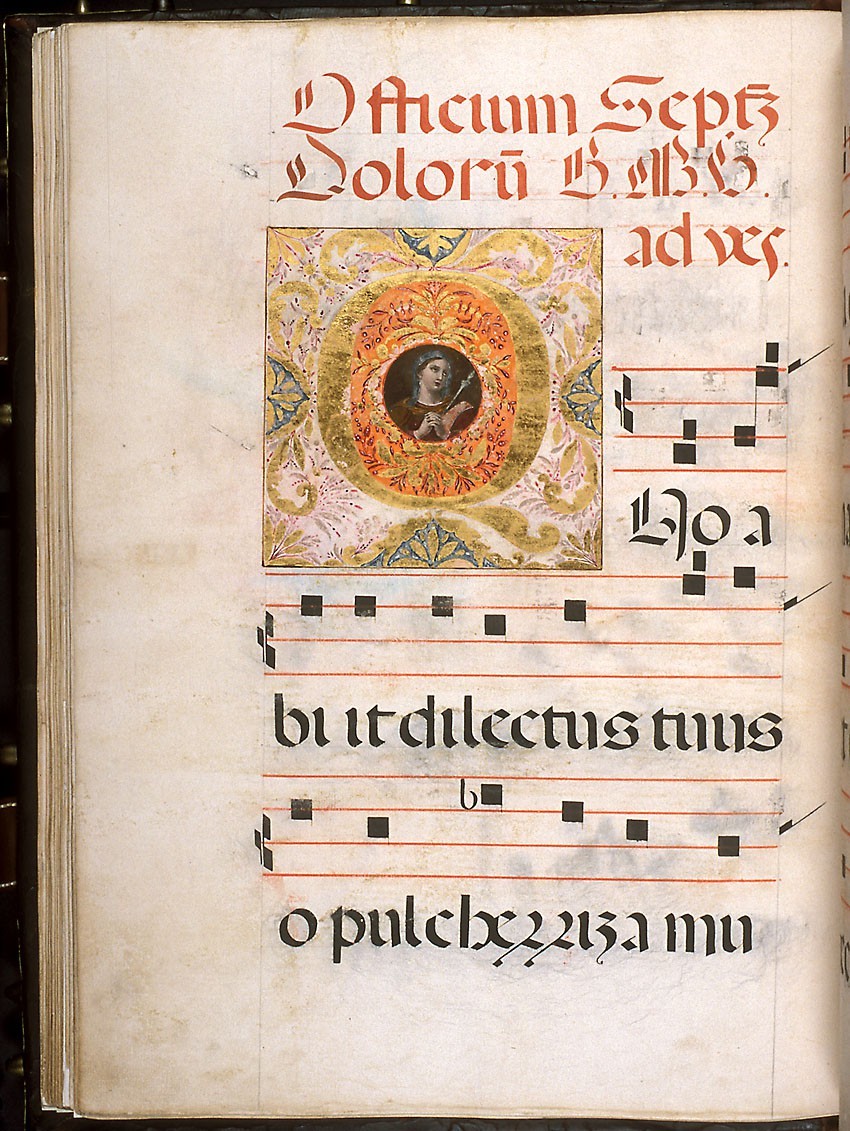 Officium Septz̄
Dolorū B.M.V.
ad ves.
QVo a
bi it dilectus tuus
o pulcherriza mu